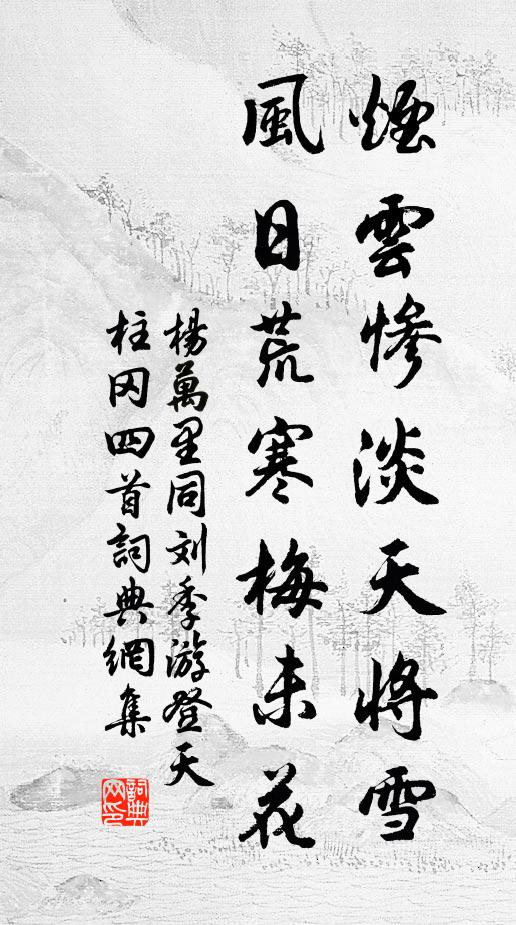 煙雲慘淡天將雪
風日荒寒梅未花
楊萬里同刘季游登天
柱冈四首詞典網集
詞典
网印